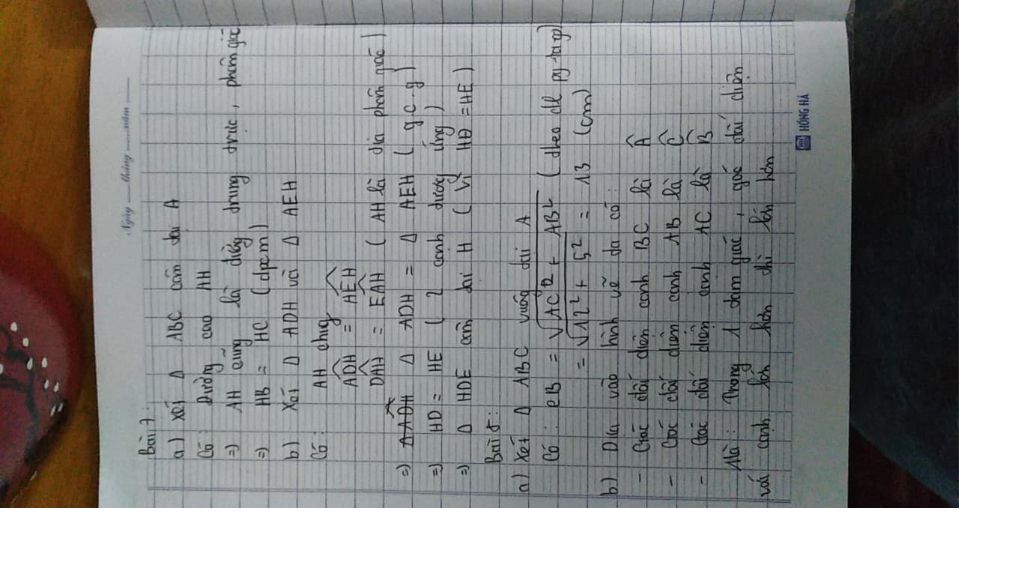 Ngày ____ tháng ____ năm ____
Bài 7:
a) Xét Δ ABC cân tại A
Có: Đường cao AH
=> AH cũng là đường trung trực, phân giác
=> HB = HC (đpcm)
b) Xét Δ ADH và Δ AEH
Có: AH chung
ADH = AEH
DAH = EAH (AH là tia phân giác)
=> Δ ADH = Δ AEH (g.c.g)
=> HD = HE (2 cạnh tương ứng)
=> Δ HDE cân tại H (vì HD = HE)
Bài 8:
a) Xét Δ ABC vuông tại A
Có: CB = √AC² + AB² (theo đl py-ta-go)
= √12² + 5² = 13 (cm)
b) Dựa vào hình vẽ ta có:
- Góc đối diện cạnh BC là Â
- Góc đối diện cạnh AB là Ĉ
- Góc đối diện cạnh AC là B̂
Mà: Trong 1 tam giác, góc đối diện
với cạnh lớn hơn thì lớn hơn
HỒNG HÀ